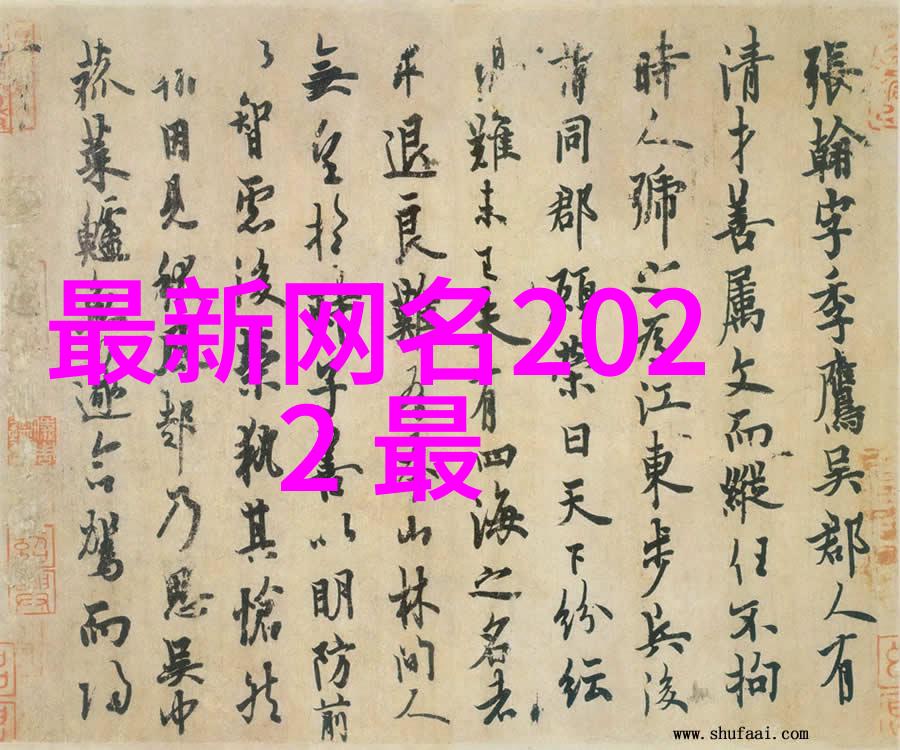 張翰字季鷹吳郡人有
清才善属文而縱任不拘
時人號之為江東步兵後
謂同郡顧榮曰天下紛紜
難未已夫有四海之名者
求退良難吾本山林間人
無望於時子善以明防前
以智慮後榮執其愴然
翰因見秋風起乃思吳中
菰菜鱸魚遂命駕而歸
最新网名202
2 最
www.shufaai.com